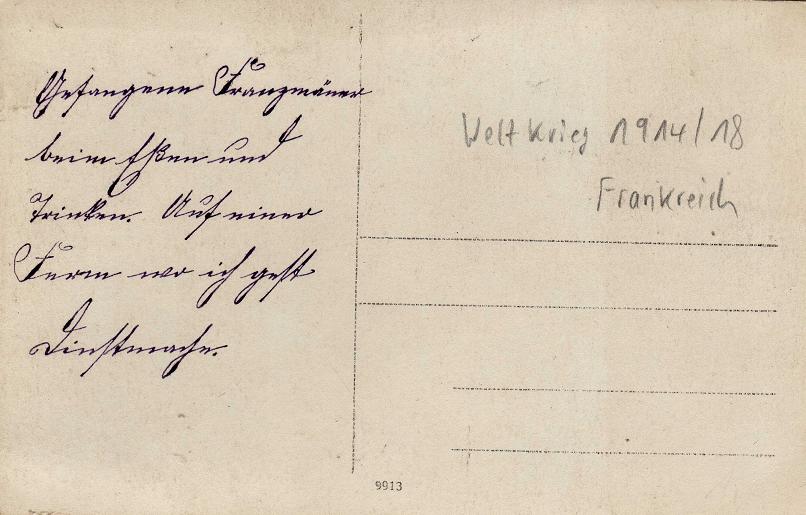 Gefangene Franzmäner
beim Eßen und
Trinken. Auf einer
Farm wo ich jest
Dinstmache.
Welt Krieg 1914/18
Frankreich
9913